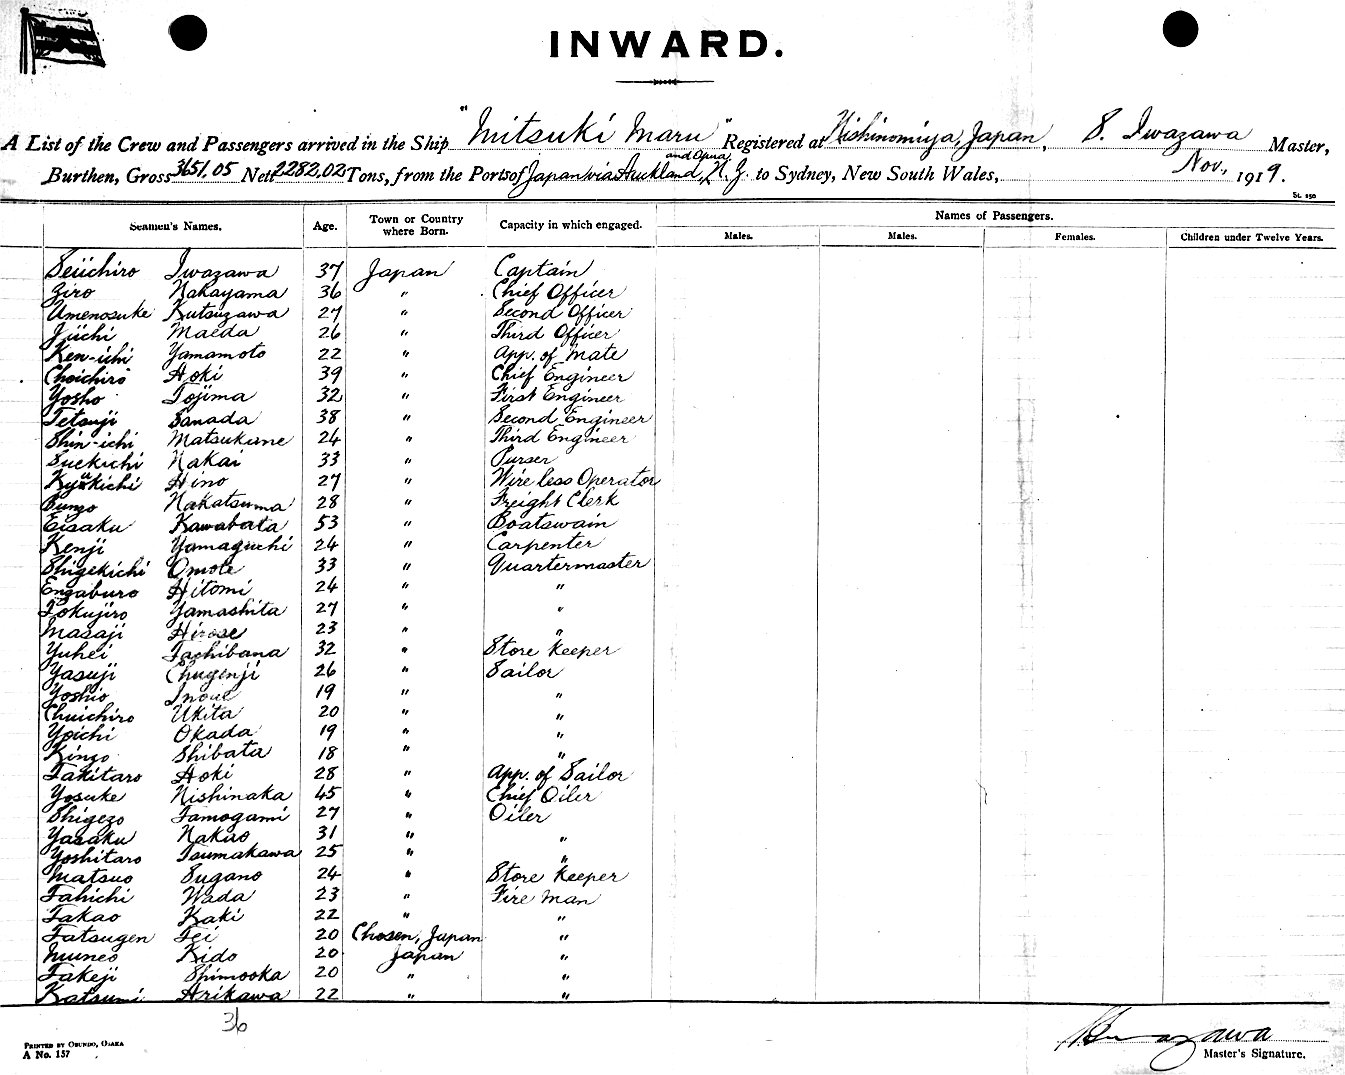 INWARD.
A List of the Crew and Passengers arrived in the Ship "Mitsuki Maru" Registered at Nishinomiya, Japan, S. Iwazawa Master,
and Opua
Burthen, Gross 3651.05 Nett 2282.02 Tons, from the Ports of Japan via Auckland, N.Z. to Sydney, New South Wales, Nov., 1919.
St. 150
Seamen's Names. Age. Town or Country where Born. Capacity in which engaged. Names of Passengers.
Males. Males. Females. Children under Twelve Years.
Seiichiro Iwazawa 37 Japan Captain
Ziro Nakayama 36 " Chief Officer
Umenosuke Kutsuzawa 27 " Second Officer
Jiichi Maeda 26 " Third Officer
Ken-ichi Yamamoto 22 " App. of Mate
Choichiro Aoki 39 " Chief Engineer
Yosho Tojima 32 " First Engineer
Tetsuji Sanada 38 " Second Engineer
Shin-ichi Matsukune 24 " Third Engineer
Suekichi Nakai 33 " Purser
Kyukichi Hino 27 " Wireless Operator
Bunzo Nakatsuma 28 " Freight Clerk
Eisaku Kawabata 53 " Boatswain
Kenji Yamaguchi 24 " Carpenter
Shigekichi Omote 33 " Quartermaster
Engaburo Hitomi 24 " "
Tokujiro Yamashita 27 " "
Masaji Hirose 23 " "
Yuhei Tachibana 32 " Store Keeper
Yasuji Chugenji 26 " Sailor
Yoshio Inoue 19 " "
Chuichiro Ukita 20 " "
Yoichi Okada 19 " "
Kingo Shibata 18 " "
Takitaro Aoki 28 " App. of Sailor
Yosuke Nishinaka 45 " Chief Oiler
Shigezo Tamogami 27 " Oiler
Yasaku Nakao 31 " "
Yoshitaro Tsumakawa 25 " "
Matsuo Sugano 24 " Store Keeper
Tahichi Wada 23 " Fire Man
Takao Kaki 22 " "
Tatsugen Tei 20 Chosen, Japan "
Muneo Kido 20 Japan "
Takeji Shimooka 20 " "
Katsumi Arikawa 22 " "
36
Iwazawa
Printed by Obundo, Osaka
A No. 157
Master's Signature.